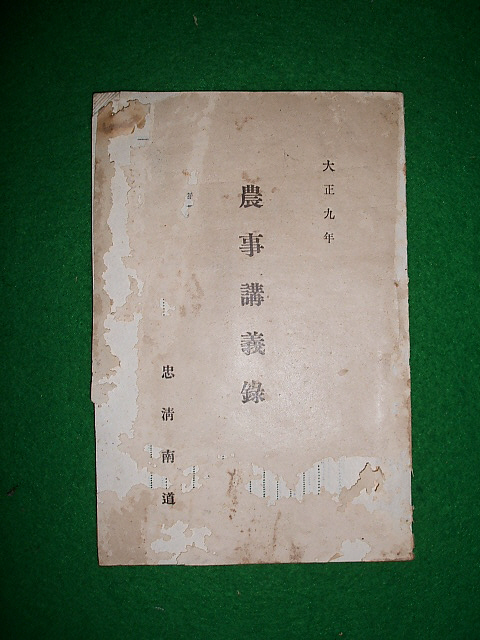 大正九年
農事講義錄
忠淸南道